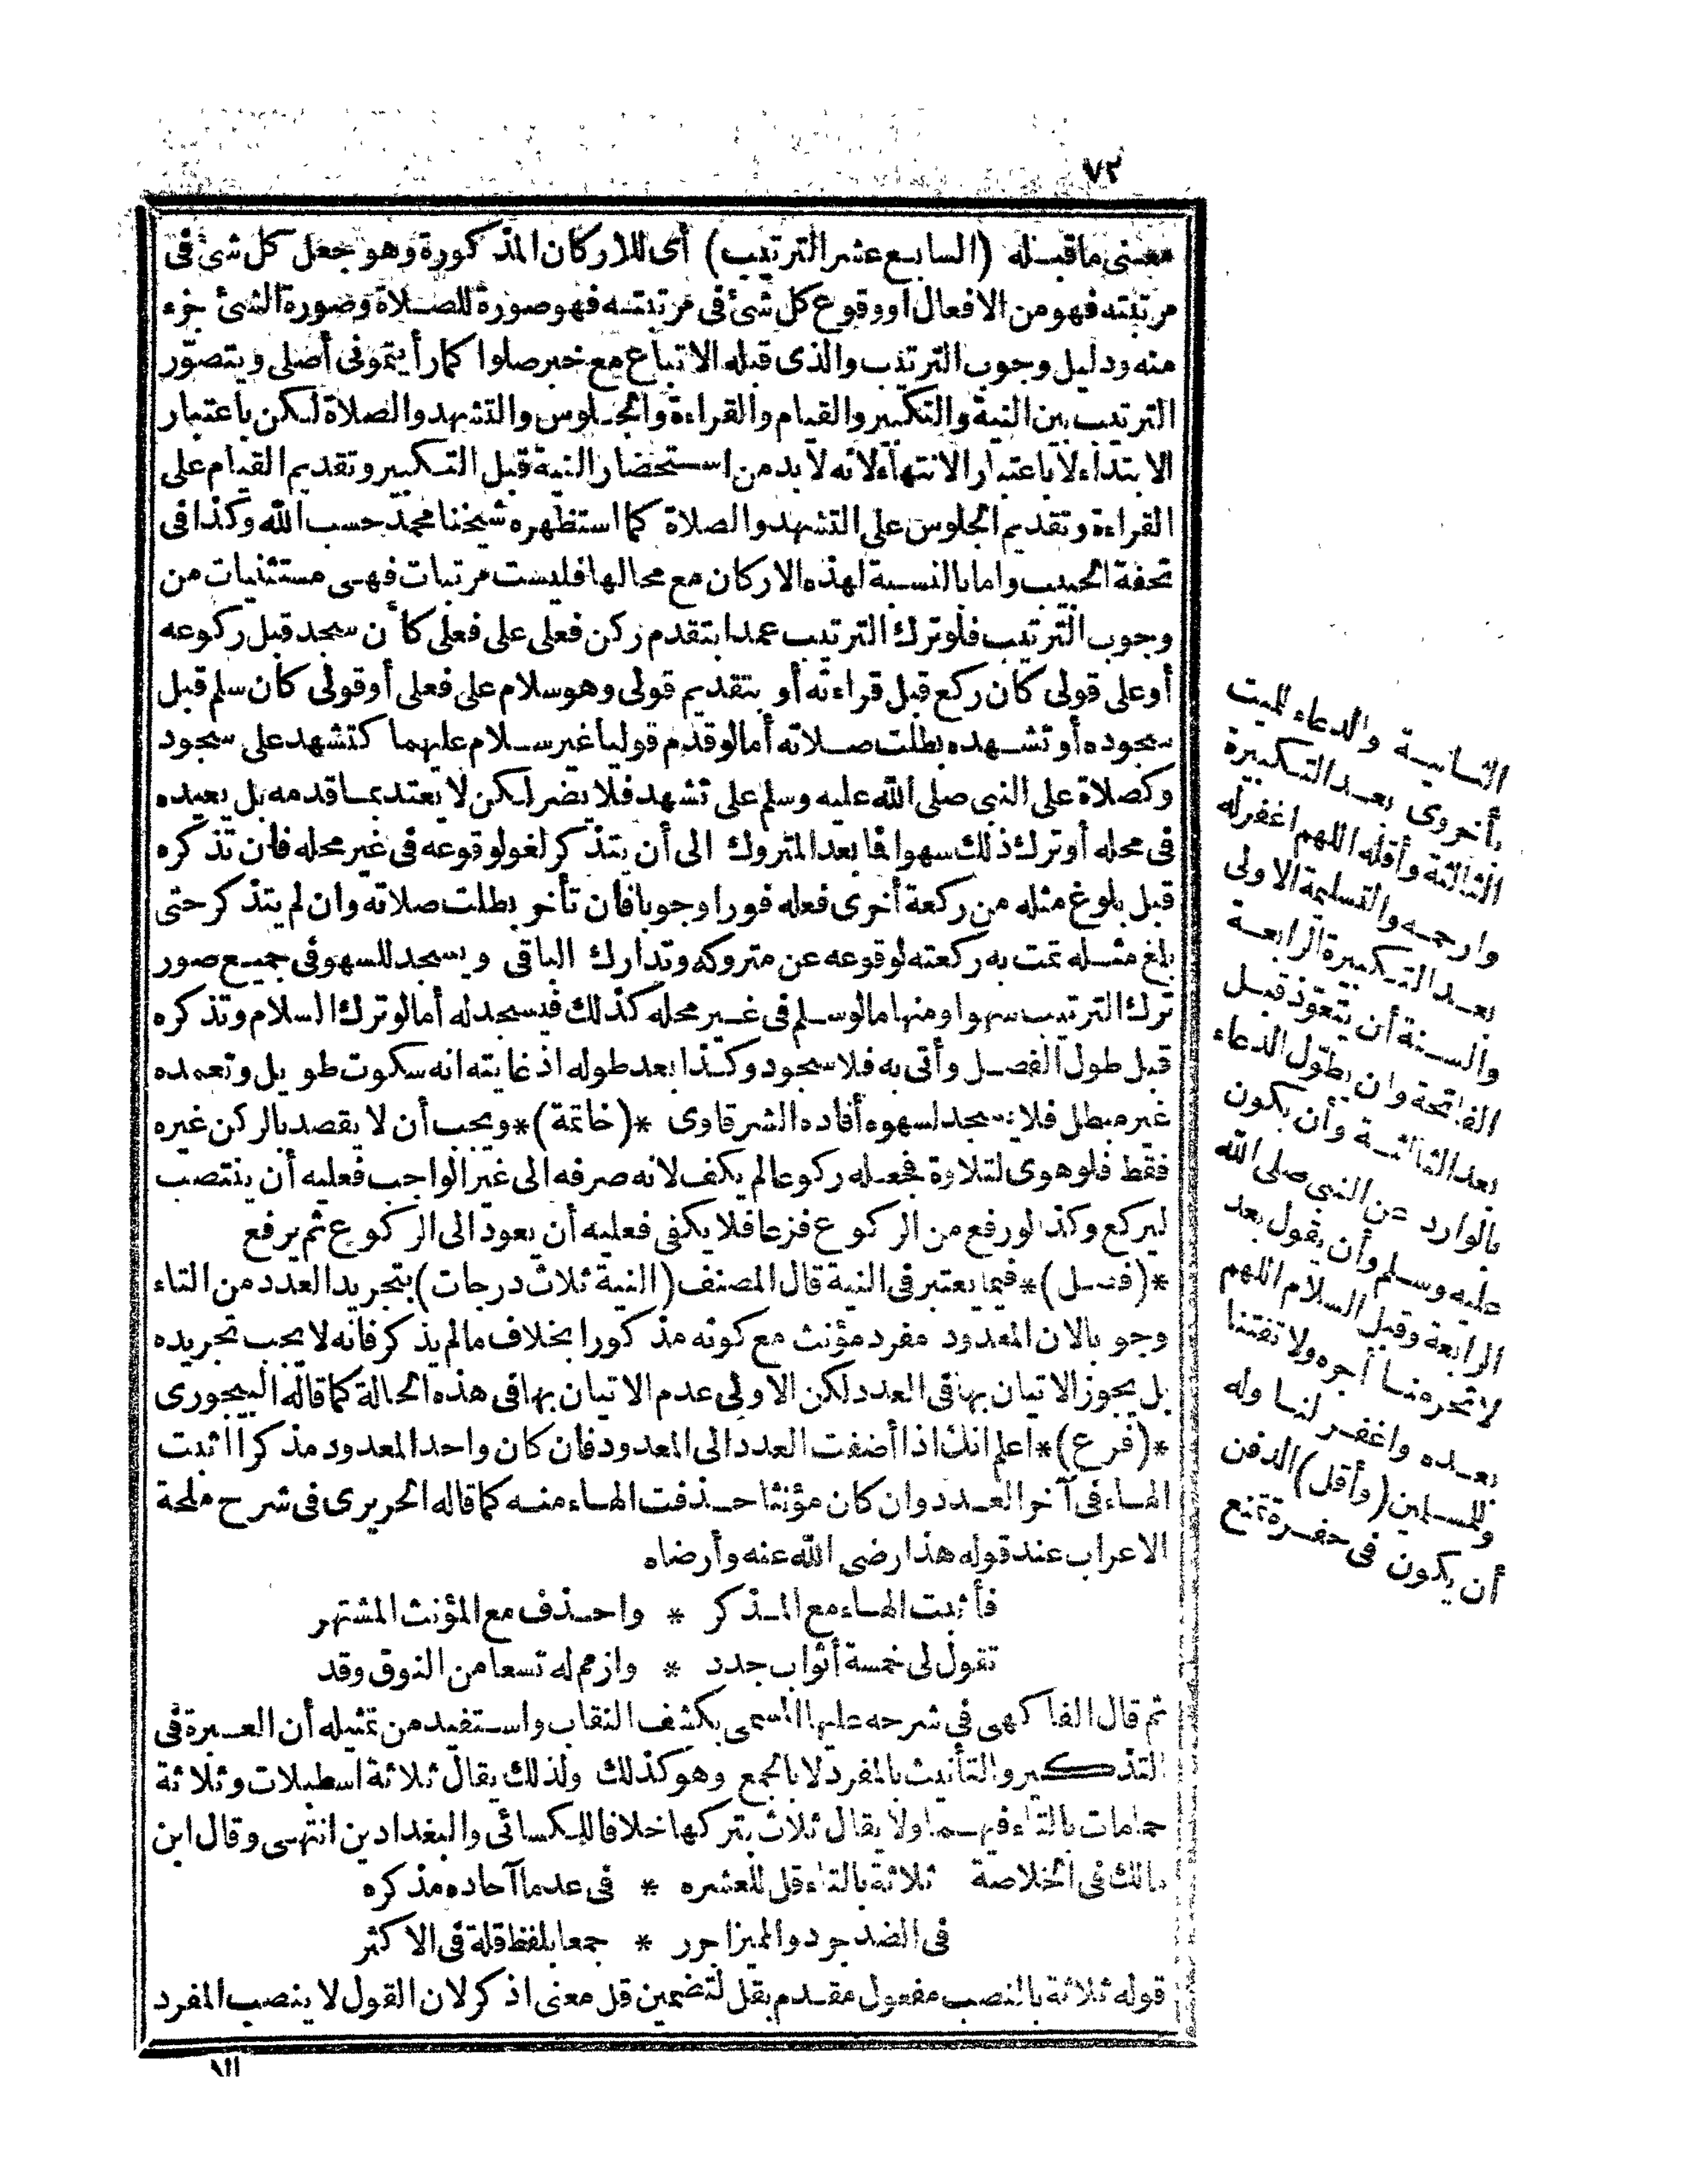 ٧٢
معنى ما قبله (السابع عشر الترتيب) أى للاركان المذكورة وهو جعل كل شئ فى
مرتبته فهو من الافعال أو وقوع كل شئ فى مرتبته فهو صورة للصلاة وصورة الشئ جزء
منه ودليل وجوب الترتيب والذى قبله الاتباع مع خبر صلوا كما رأيتمونى أصلى ويتصوّر
الترتيب بين النية والتكبير والقيام والقراءة والجلوس والتشهد والصلاة لكن باعتبار
الابتداء لا باعتبار الانتهاء لانه لا بد من استحضار النية قبل التكبير وتقديم القيام على
القراءة وتقديم الجلوس على التشهد والصلاة كما استظهره شيخنا محمد حسب الله وكذا فى
تحفة الحبيب واما بالنسبة لهذه الاركان مع محالها فليست مرتبات فهى مستثنيات من
وجوب الترتيب فلو ترك الترتيب عمدا بتقدم ركن فعلى على فعلى كأن سجد قبل ركوعه
أو على قولى كان ركع قبل قراءته أو بتقديم قولى وهو سلام على فعلى أو قولى كان سلم قبل
سجوده أو تشهده بطلت صلاته أما لو قدم قوليا غير سلام عليهما كتشهد على سجود
وكصلاة على النبى صلى الله عليه وسلم على تشهد فلا يضر لكن لا يعتد بما قدمه بل يعيده
فى محله أو ترك ذلك سهوا فما بعد المتروك الى أن يتذكر لغو لوقوعه فى غير محله فان تذكره
قبل بلوغ مثله من ركعة أخرى فعله فورا وجوبا فان تأخر بطلت صلاته وان لم يتذكر حتى
بلغ مثله تمت به ركعته لوقوعه عن متروكه وتدارك الباقى ويسجد للسهو فى جميع صور
ترك الترتيب سهوا ومنها ما لو سلم فى غير محله كذلك فيسجد له أما لو ترك السلام وتذكره
قبل طول الفصل وأتى به فلا سجود وكذا بعد طوله اذ غايته انه سكوت طويل وتعمده
غير مبطل فلا يسجد لسهوه أفاده الشرقاوى *(خاتمة)* ويجب أن لا يقصد بالركن غيره
فقط فلو هوى لتلاوة فجعله ركوعا لم يكف لانه صرفه الى غير الواجب فعليه أن ينتصب
ليركع وكذا لو رفع من الركوع فزعا فلا يكفى فعليه أن يعود الى الركوع ثم يرفع
*(فصل)* فيما يعتبر فى النية قال المصنف (النية ثلاث درجات) بتجريد العدد من التاء
وجوبا لان المعدود مفرد مؤنث مع كونه مذكورا بخلاف ما لم يذكر فانه لا يجب تجريده
بل يجوز الاتيان بها فى العدد لكن الاولى عدم الاتيان بها فى هذه الحالة كما قاله البيجورى
*(فرع)* اعلم انك اذا أضفت العدد الى المعدود فان كان واحد المعدود مذكرا اثبت
الهاء فى آخر العدد وان كان مؤنثا حذفت الهاء منه كما قاله الحريرى فى شرح ملحة
الاعراب عند قوله هذا رضى الله عنه وأرضاه
فأثبت الهاء مع المذكر * واحذف مع المؤنث المشتهر
تقول لى خمسة أثواب جدد * وازمم له تسعا من النوق وقد
ثم قال الفاكهى فى شرحه عليها المسمى بكشف النقاب واستفيد من تمثيله أن العبرة فى
التذكير والتأنيث بالمفرد لا بالجمع وهو كذلك ولذلك يقال ثلاثة اسطبلات وثلاثة
حمامات بالتاء فيهما ولا يقال ثلاث بتركها خلافا للكسائى والبغدادين انتهى وقال ابن
مالك فى الخلاصة ثلاثة بالتاء قل للعشره * فى عد ما آحاده مذكره
فى الضد جرد والمميز اجرر * جمعا بلفظ قلة فى الاكثر
قوله ثلاثة بالنصب مفعول مقدم بقل لتضمين قل معنى اذكر لان القول لا ينصب المفرد
الثانية والدعاء للميت
بأخروى بعد التكبيرة
الثالثة وأقله اللهم اغفر له
وارحمه والتسليمة الاولى
بعد التكبيرة الرابعة
والسنة أن يتعوّذ قبل
الفاتحة وان يطوّل الدعاء
بعد الثالثة وأن يكون
بالوارد عن النبى صلى الله
عليه وسلم وأن يقول بعد
الرابعة وقبل السلام اللهم
لا تحرمنا أجره ولا تفتنا
بعده واغفر لنا وله
وللمسلمين (وأقل) الدفن
أن يكون فى حفرة تمنع